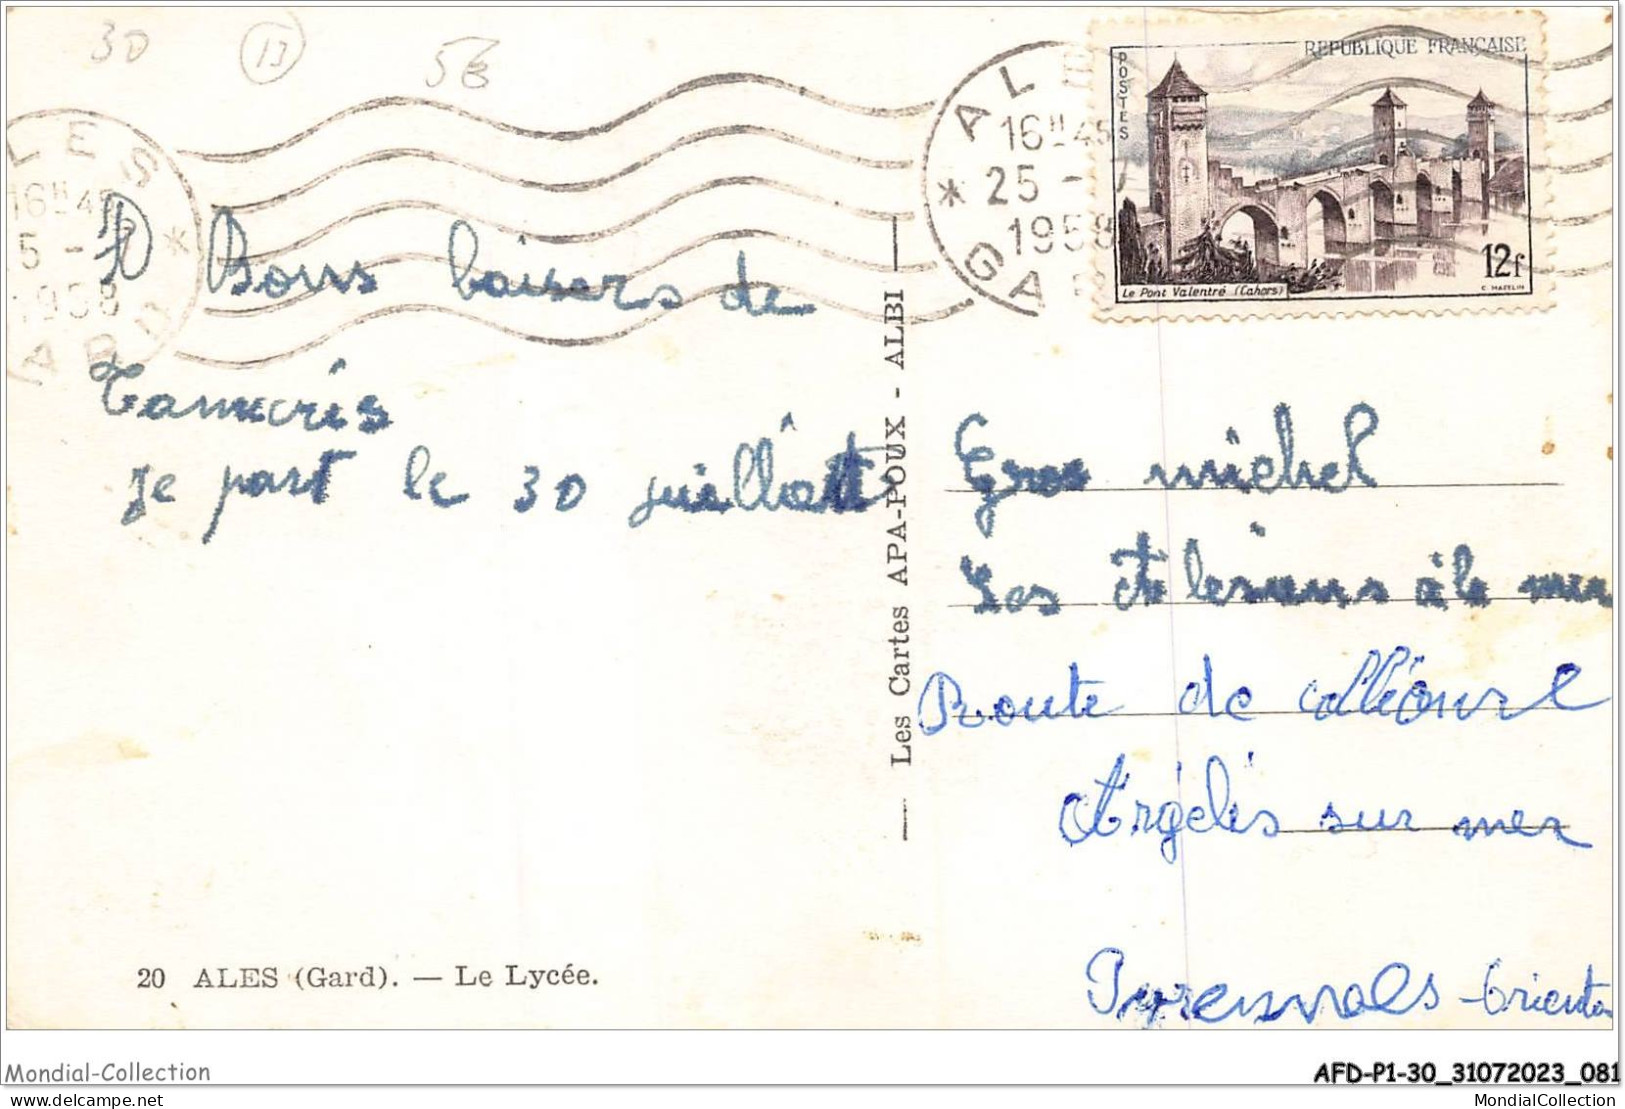 30 13
ALES
16H45
5 -
1958
ARD
ALE
16H45
25 -
1958
GA
REPUBLIQUE FRANÇAISE
POSTES
12f
Le Pont Valentré (Cahors)
C. MAZELIN
Bons baisers de
Tamaris
Je part le 30 juillait
— Les Cartes APA-POUX - ALBI —
Gros michel
Les à la mer
Route de
Argelès sur mer
Pyrennoles Orienta
20 ALES (Gard). — Le Lycée.
Mondial-Collection
AFD-P1-30_31072023_081
delcampe.net
MondialCollection